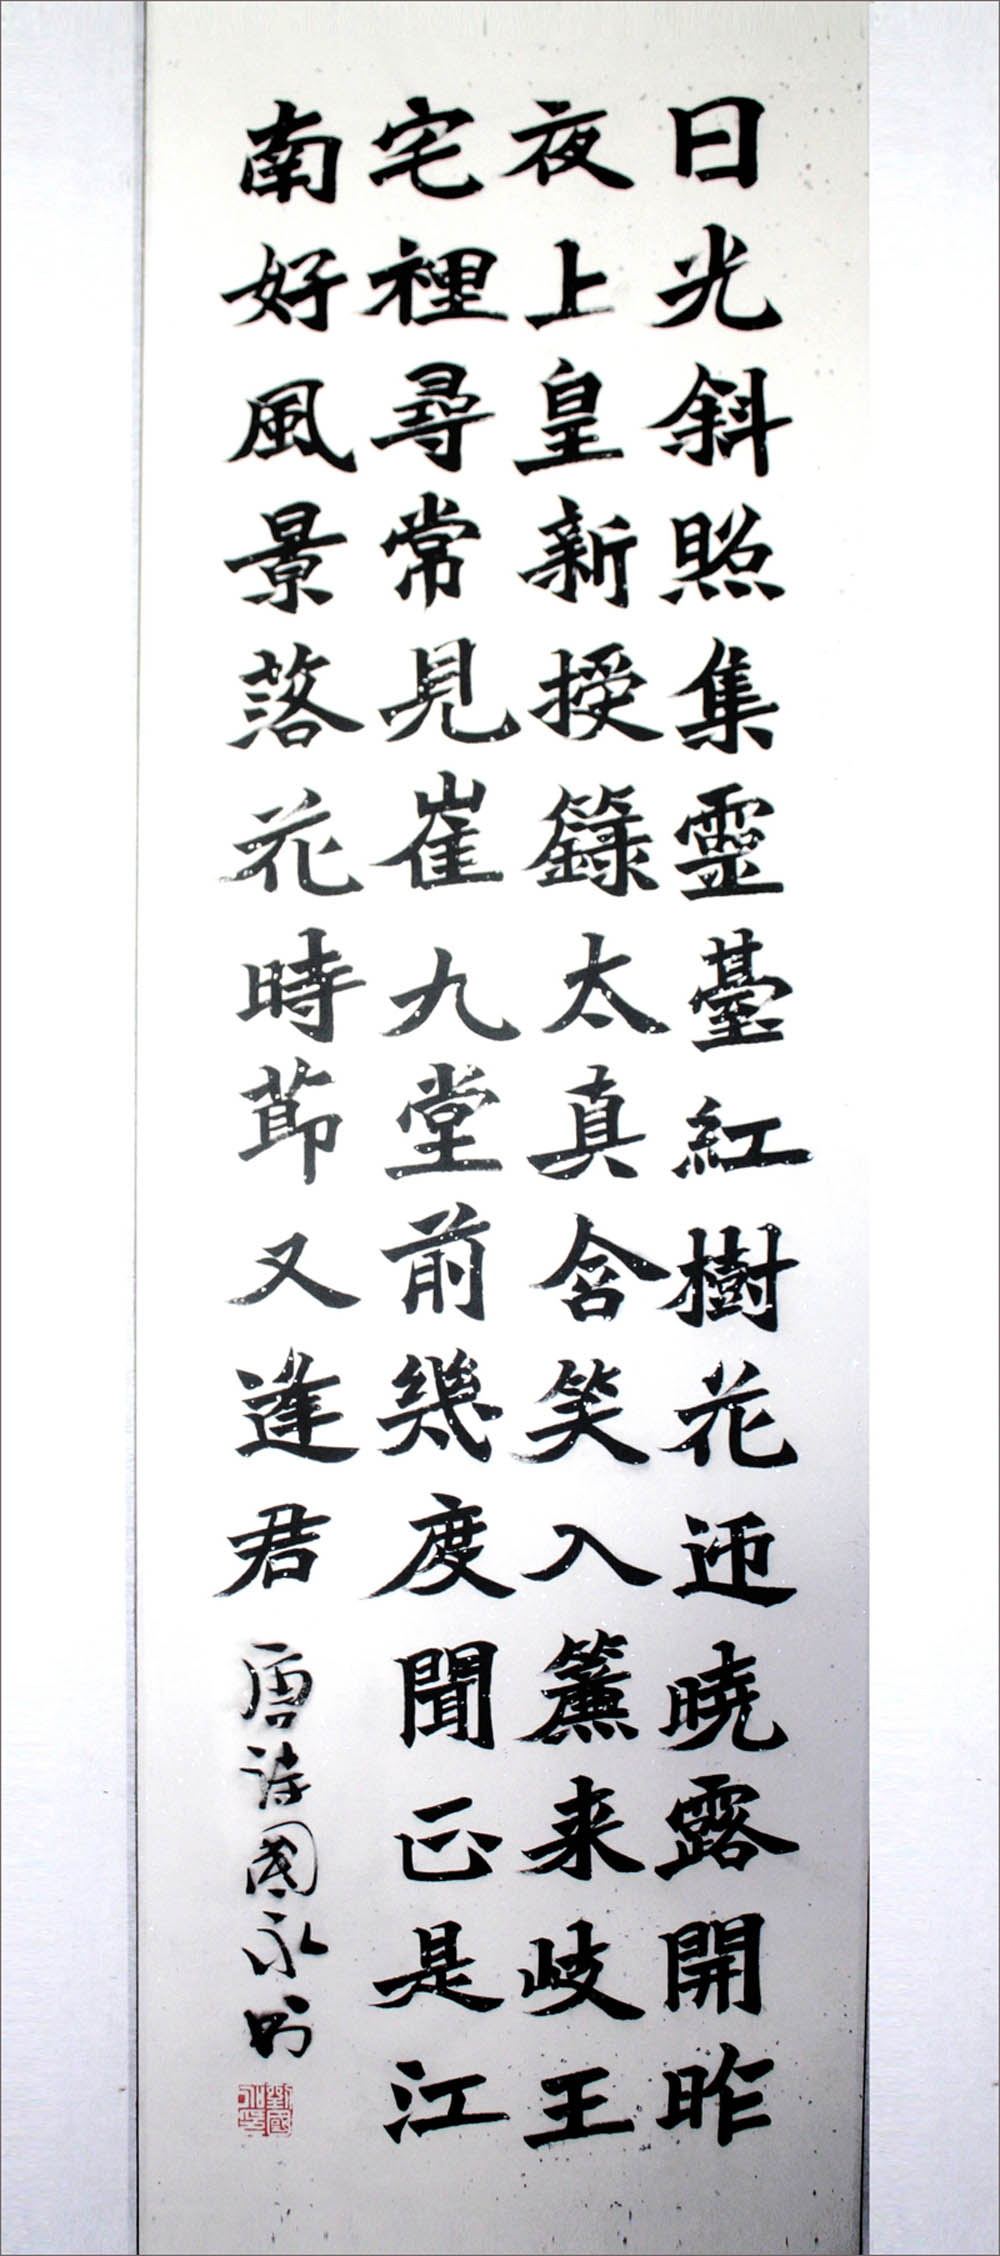 日光斜照集靈臺紅樹花迊曉露開昨
夜上皇新授籙太真含笑入簾来岐王
宅裡尋常見崔九堂前幾度聞正是江
南好風景落花時節又逢君
唐詩國永書
劉國永印